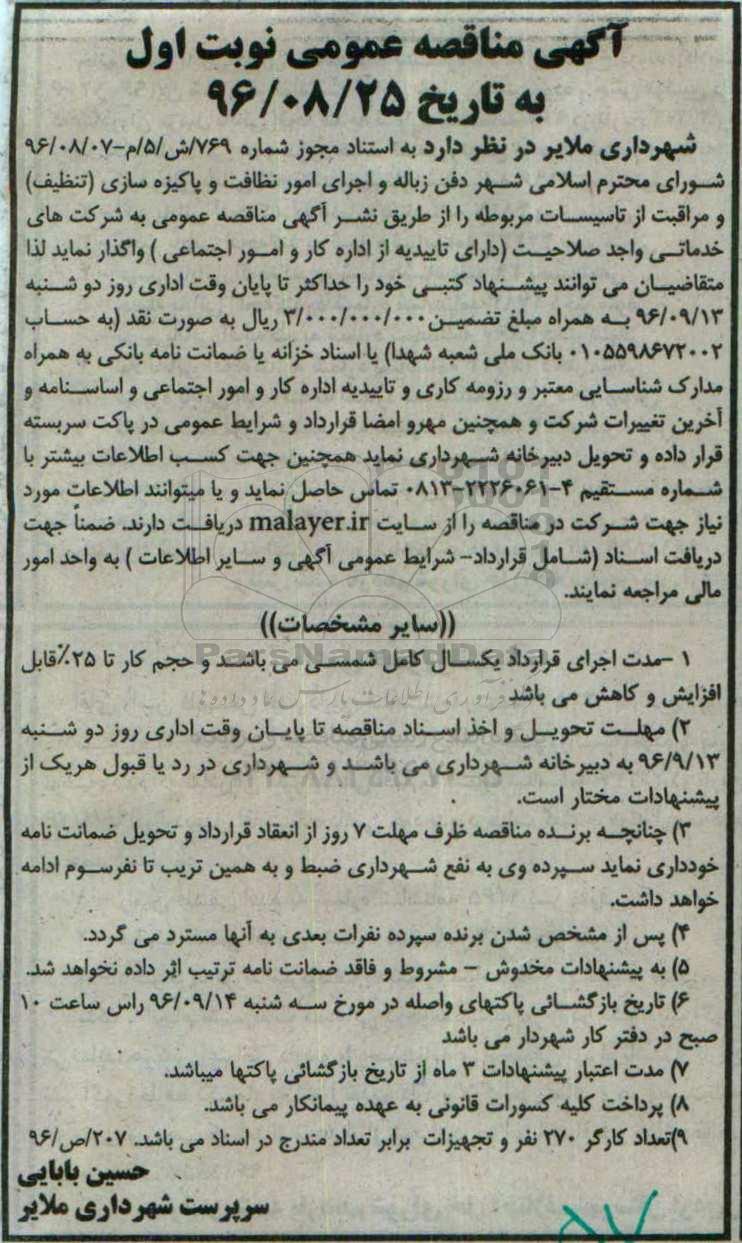 آگهی مناقصه عمومی نوبت اول
به تاریخ ۹۶/۰۸/۲۵
شهرداری ملایر در نظر دارد به استناد مجوز شماره ۷۶۹/ش/۵/م-۹۶/۰۸/۰۷
شورای محترم اسلامی شهر دفن زباله و اجرای امور نظافت و پاکیزه سازی (تنظیف)
و مراقبت از تاسیسات مربوطه را از طریق نشر آگهی مناقصه عمومی به شرکت های
خدماتی واجد صلاحیت (دارای تاییدیه از اداره کار و امور اجتماعی ) واگذار نماید لذا
متقاضیان می توانند پیشنهاد کتبی خود را حداکثر تا پایان وقت اداری روز دو شنبه
۹۶/۰۹/۱۳ به همراه مبلغ تضمین ۳/۰۰۰/۰۰۰/۰۰۰ ریال به صورت نقد (به حساب
۰۱۰۵۵۹۸۶۷۲۰۰۲ بانک ملی شعبه شهدا) یا اسناد خزانه یا ضمانت نامه بانکی به همراه
مدارک شناسایی معتبر و رزومه کاری و تاییدیه اداره کار و امور اجتماعی و اساسنامه و
آخرین تغییرات شرکت و همچنین مهرو امضا قرارداد و شرایط عمومی در پاکت سربسته
قرار داده و تحویل دبیرخانه شهرداری نماید همچنین جهت کسب اطلاعات بیشتر با
شماره مستقیم ۴-۲۲۲۶۰۶۱-۰۸۱۳ تماس حاصل نماید و یا میتوانند اطلاعات مورد
نیاز جهت شرکت در مناقصه را از سایت malayer.ir دریافت دارند. ضمناً جهت
دریافت اسناد (شامل قرارداد- شرایط عمومی آگهی و سایر اطلاعات ) به واحد امور
مالی مراجعه نمایند.
((سایر مشخصات))
ParsNamadData
فرآوری اطلاعات پارس نماد داده ها
۱ -مدت اجرای قرارداد یکسال کامل شمسی می باشد و حجم کار تا ۲۵٪قابل
افزایش و کاهش می باشد
۲) مهلت تحویل و اخذ اسناد مناقصه تا پایان وقت اداری روز دو شنبه
۹۶/۹/۱۳ به دبیرخانه شهرداری می باشد و شهرداری در رد یا قبول هریک از
پیشنهادات مختار است.
۳) چنانچه برنده مناقصه ظرف مهلت ۷ روز از انعقاد قرارداد و تحویل ضمانت نامه
خودداری نماید سپرده وی به نفع شهرداری ضبط و به همین تریب تا نفرسوم ادامه
خواهد داشت.
۴) پس از مشخص شدن برنده سپرده نفرات بعدی به آنها مسترد می گردد.
۵) به پیشنهادات مخدوش – مشروط و فاقد ضمانت نامه ترتیب اثر داده نخواهد شد.
۶) تاریخ بازگشائی پاکتهای واصله در مورخ سه شنبه ۹۶/۰۹/۱۴ راس ساعت ۱۰
صبح در دفتر کار شهردار می باشد
۷) مدت اعتبار پیشنهادات ۳ ماه از تاریخ بازگشائی پاکتها میباشد.
۸) پرداخت کلیه کسورات قانونی به عهده پیمانکار می باشد.
۹)تعداد کارگر ۲۷۰ نفر و تجهیزات برابر تعداد مندرج در اسناد می باشد. ۲۰۷/ص/۹۶
حسین بابایی
سرپرست شهرداری ملایر